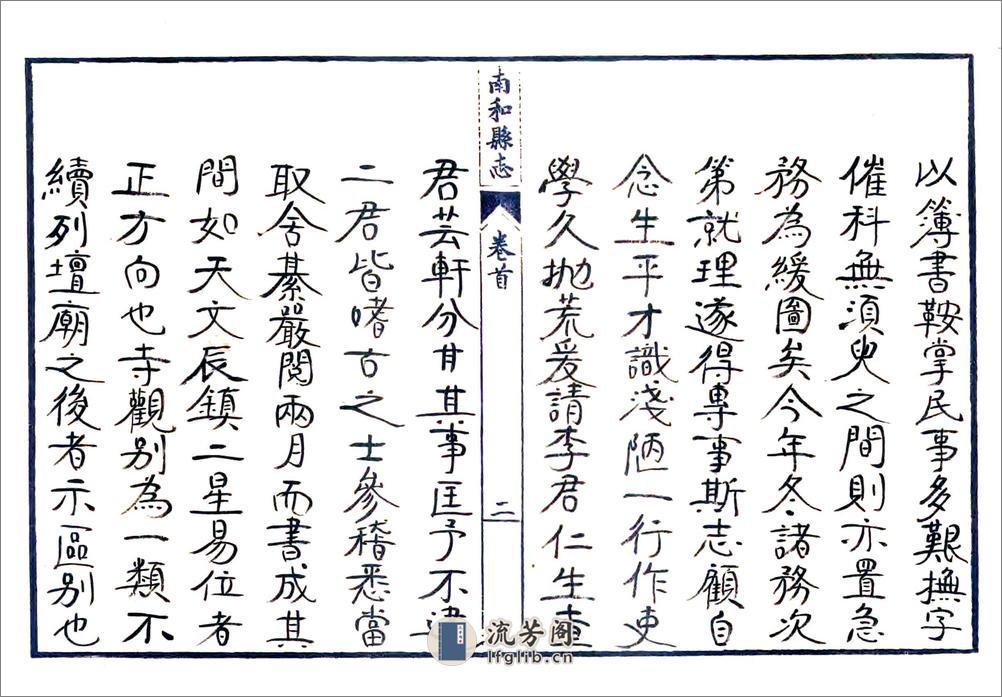 以簿書鞅掌民事多艱撫字
催科無須臾之間則亦置急
務為緩圖矣今年冬諸務次
第就理遂得專事斯志顧自
念生平才識淺陋一行作吏
學久抛荒爰請李君仁生查
南和縣志
卷首
二
君芸軒分任其事匡予不逮
二君皆嗜古之士參稽悉當
取舍綦嚴閱兩月而書成其
間如天文辰鎮二星易位者
正方向也寺觀别為一類不
續列壇廟之後者示區别也
流芳阁
lfglib.cn